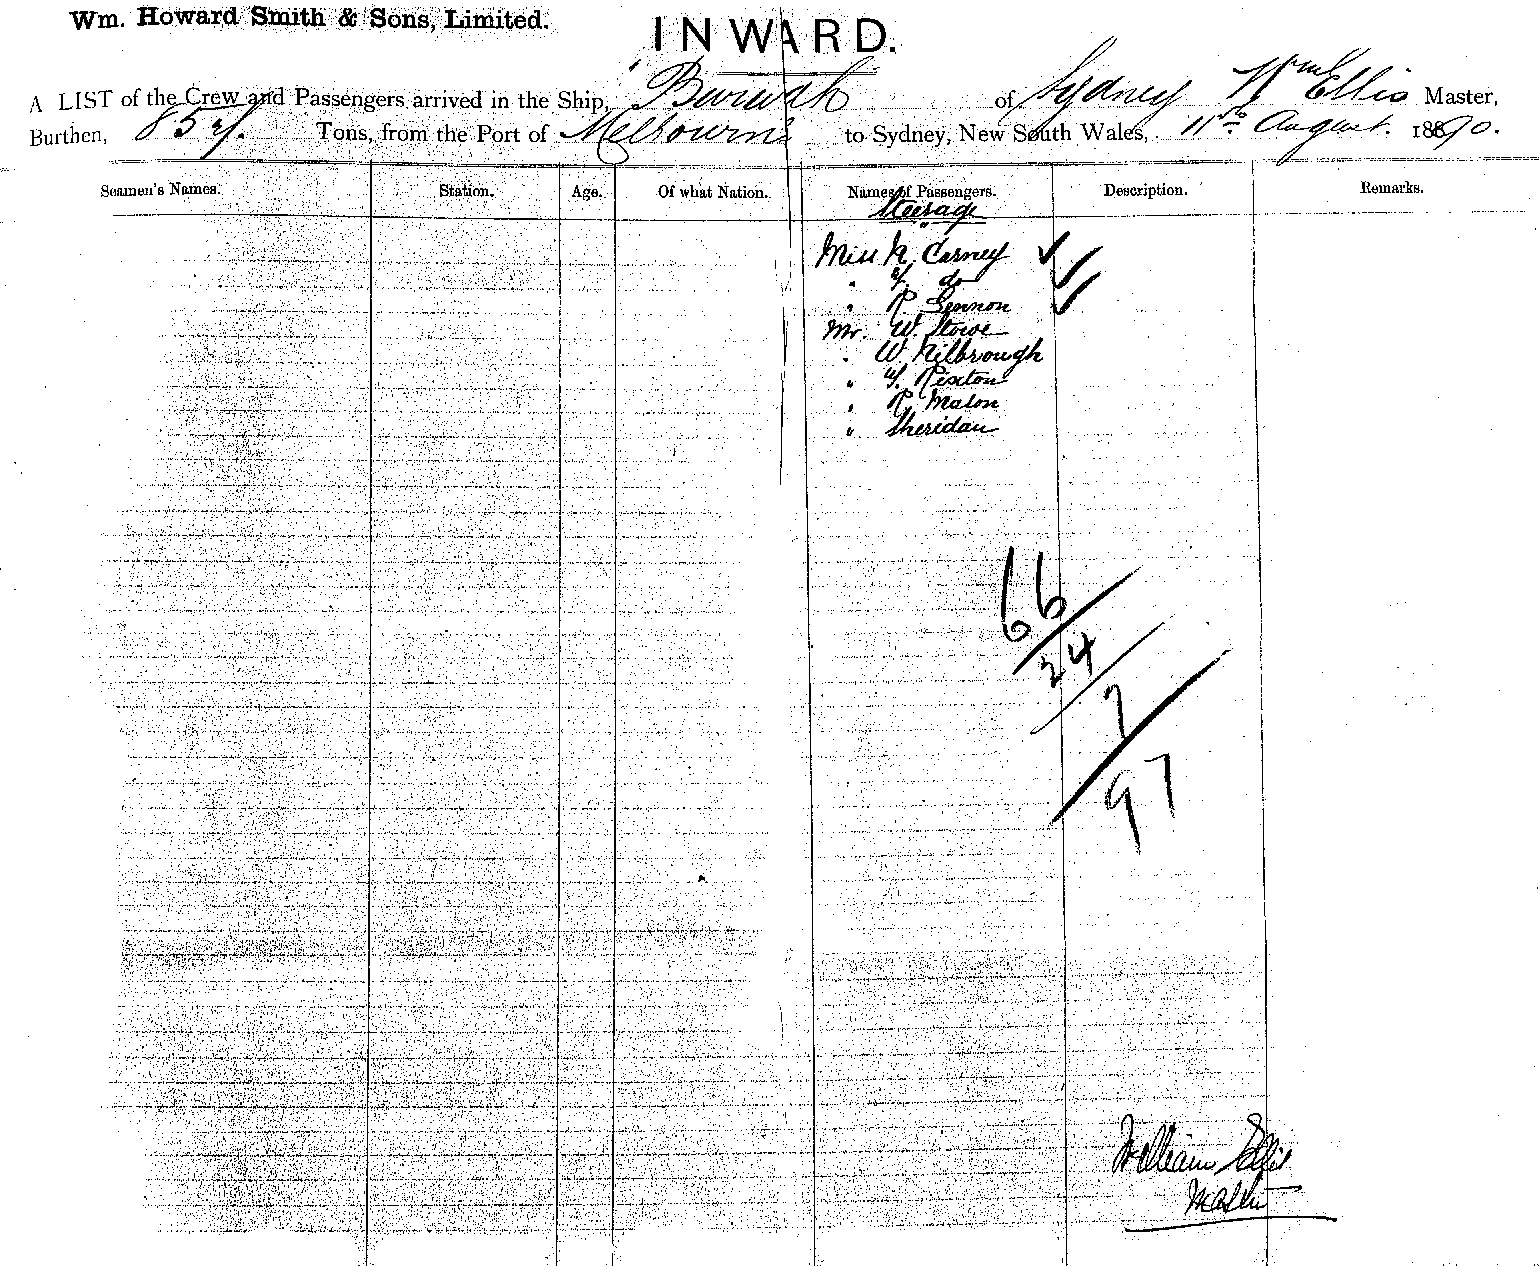 Wm. Howard Smith & Sons, Limited.
INWARD.
A LIST of the Crew and Passengers arrived in the Ship, "Burwah of Sydney Wm Ellis Master,
Burthen, Tons, from the Port of Melbourne to Sydney, New South Wales, 11th August. 1890.
Seamen's Names. Station. Age. Of what Nation. Names of Passengers. Description. Remarks.
Steerage
Miss N. Carney
" do
" R Gennon
Mr. W. Stowe
" W. Kilbrough
" Rixton
" R. Malon
" Sheridan
66
24
7
97
William Ellis
Master